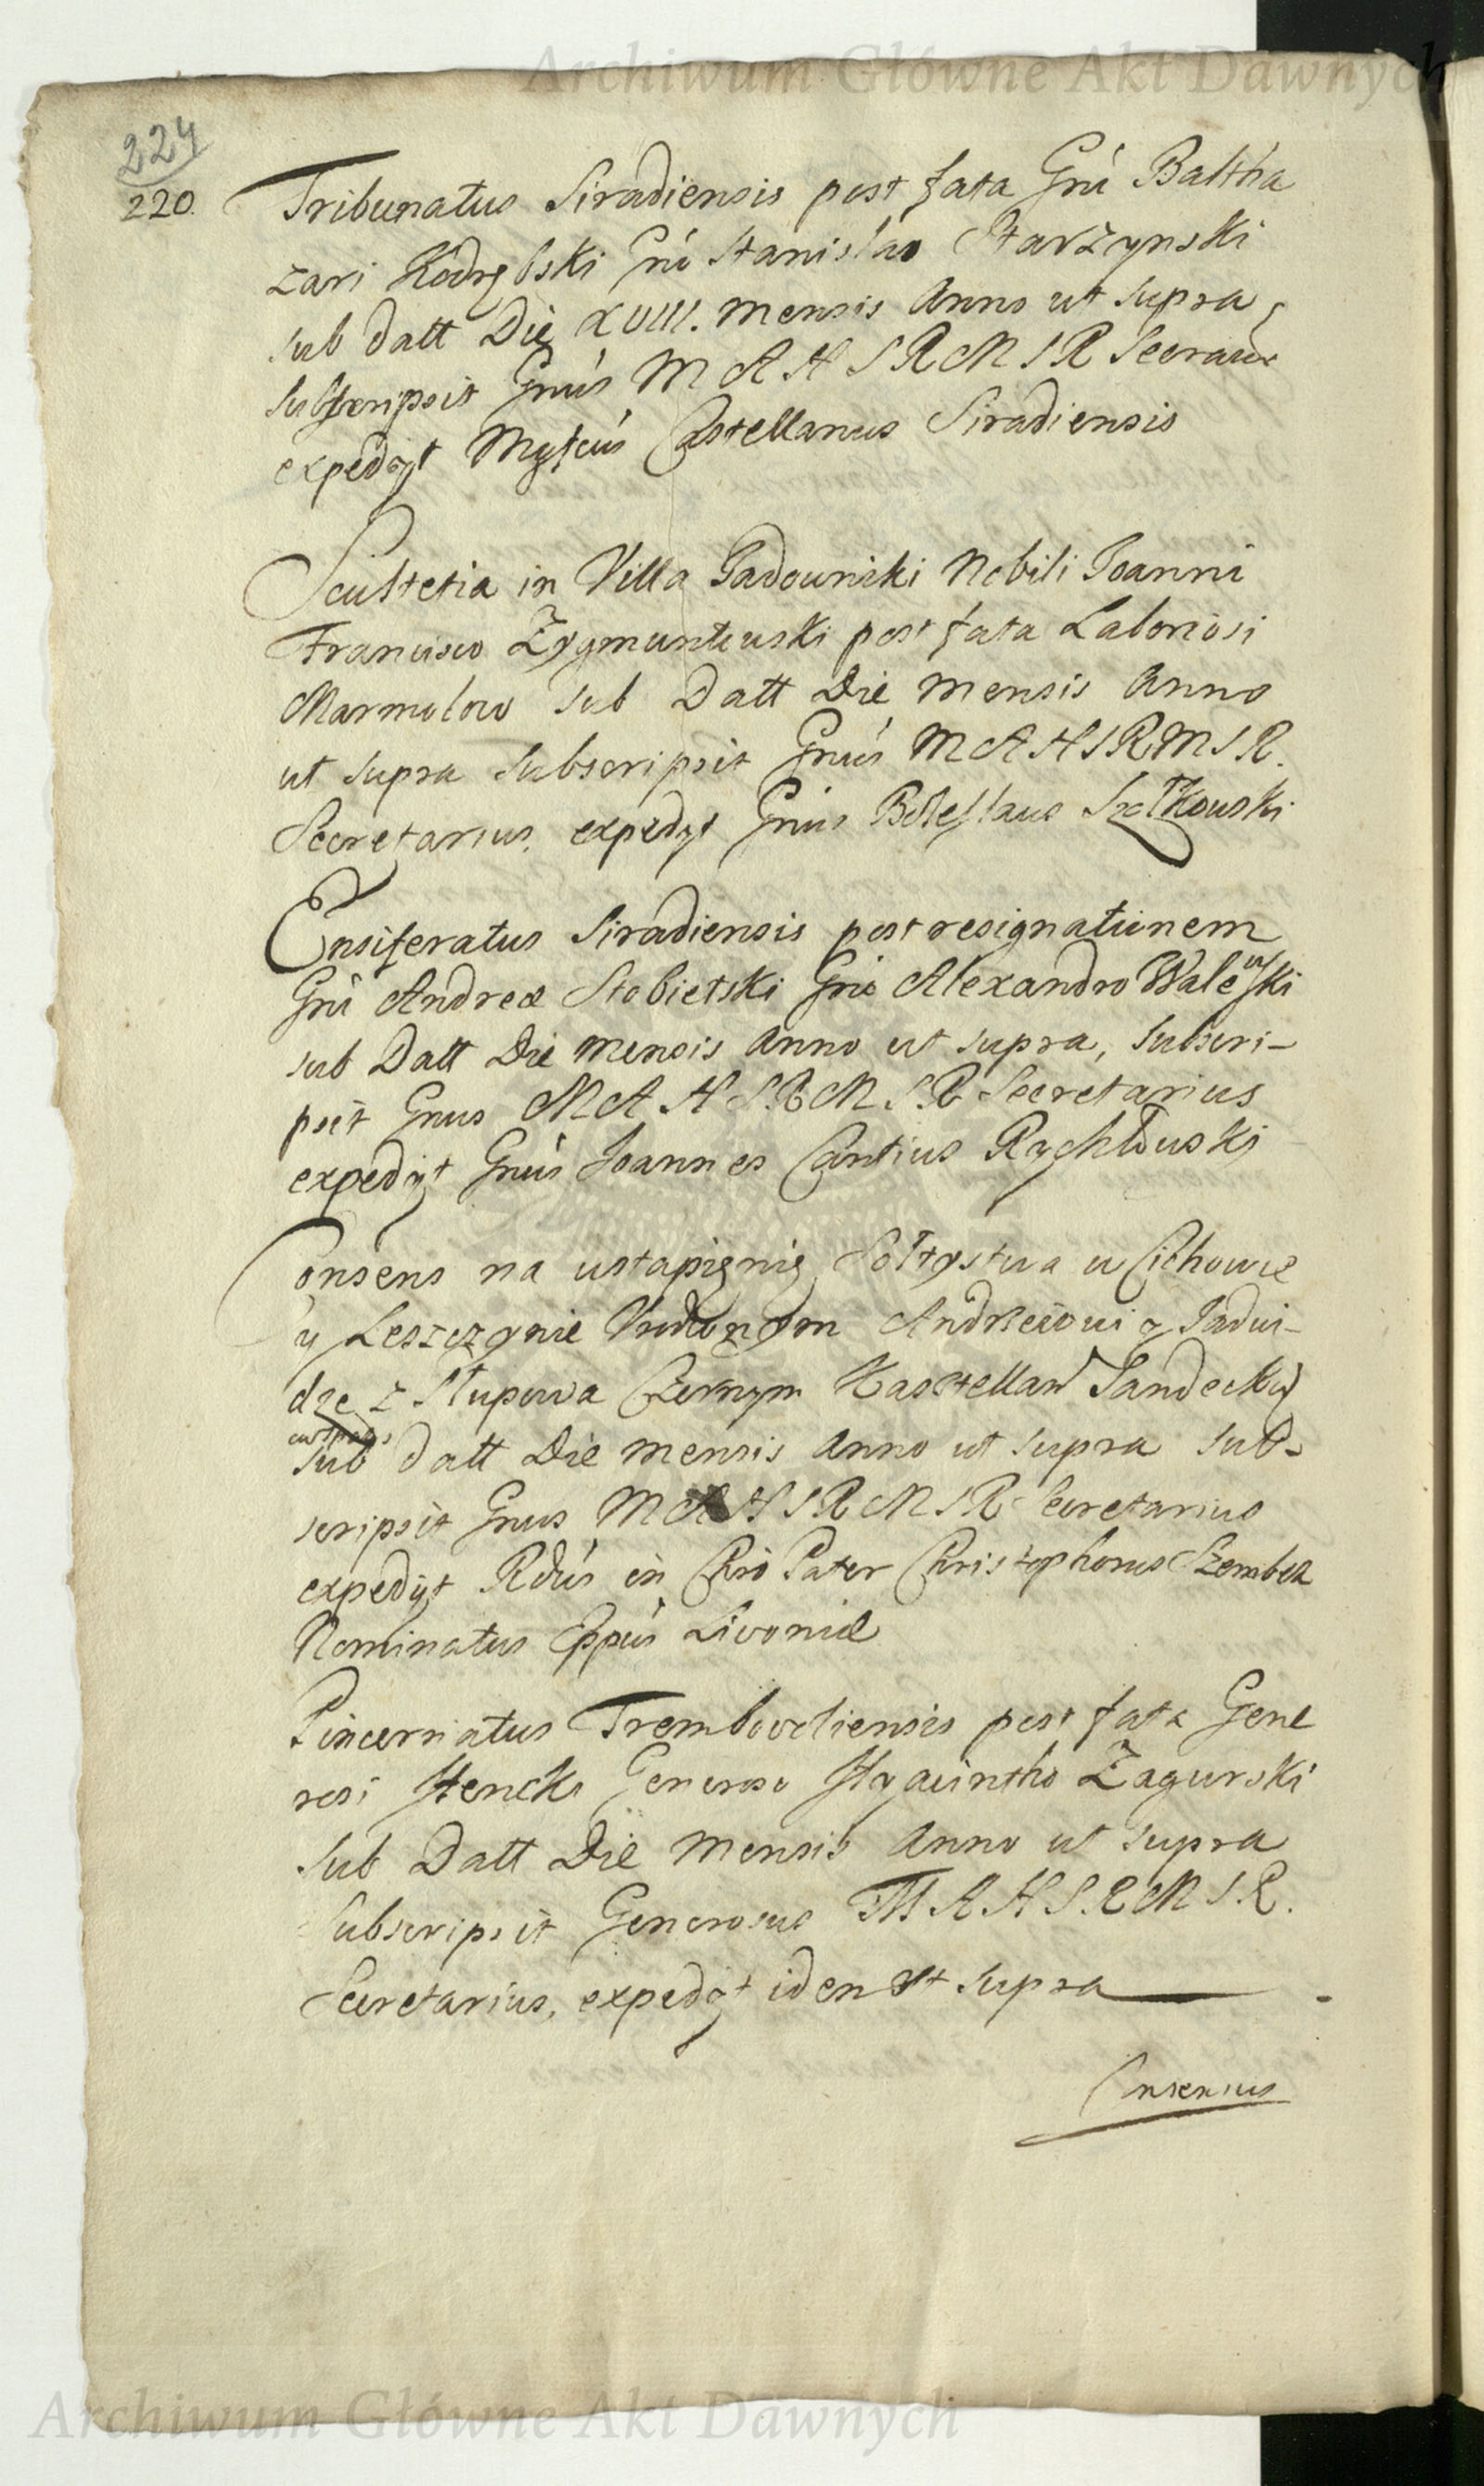 Archiwum Główne Akt Dawnych
224
220.
Tribunatus Siradiensis post fata Gñi Baltha
zari Kodrębski Gño Stanislao Starzynski
sub datt Die XVIII. mensis Anno ut supra,
subscripsit Gnús M A H S R M S R Secrarius
expedyt Mgfcús Castellanus Siradiensis
Scultetia in Villa Gadowniki Nobili Joanni
Francisco Zygmuntowski post fata Laboriosi
Marmolow sub Datt Die mensis Anno
ut supra subscripsit Gnús M A H S R M S R.
Secretarius, expedyt Gnús Boleslaus
Ensiferatus Siradiensis post resignationem
Gñi Andreæ Stobietski Gño Alexandro Walewski
sub Datt Die mensis Anno ut supra, subscri-
psit Gnus M A H S.R M S.R Secretarius
expedyt Gnús Joannes Cantius Rychłowski
Consens na ustąpięnię Sołtystwa w Cichowie
y Leszczynie Urodzonym Andrzeiowi y Jadwi-
dze z Słupowa Czernym Kasztellan Sandeckiy
sub datt Die mensis Anno ut supra sub-
scripsit Gnus M A H S R M S R Secretarius
expedyt Rdús in Chrõ Pater Christophorus Szembek
Nominatus Eppús Livoniæ
Pincernatus Trembovliensis post fata Gene
rosi Stencki Generoso Hyacintho Zagurski
sub Datt Die Mensis Anno ut supra
subscripsit Generosus M A H S.R M S.R.
Secretarius, expedyt idem ut supra
Consensus
Archiwum Główne Akt Dawnych